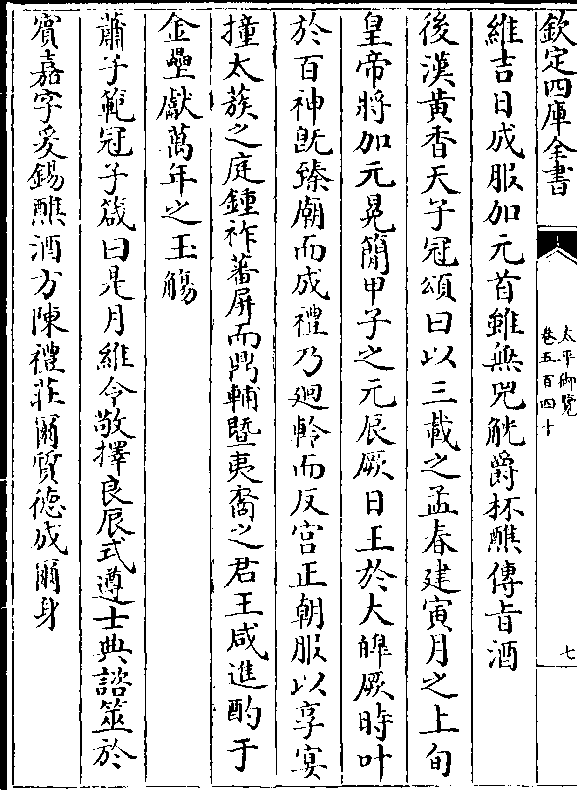 欽定四庫全書
太平御覽
卷五百四十
七
維吉日成服加元首雖無兕觥爵杯醮傳旨酒
後漢黄香天子冠頌曰以三載之孟春建寅月之上旬
皇帝將加元冕簡甲子之元辰厥日王於大皥厥時叶
於百神既臻廟而成禮乃廻軨而反宫正朝服以享宴
撞太蔟之庭鍾祚蕃屏而鼎輔暨夷裔之君王咸進酌于
金罍獻萬年之玉觴
蕭子範冠子箴曰是月維令敬擇良辰式遵士典諮筮於
賓嘉字爰錫醮酒方陳禮莊爾質徳成爾身